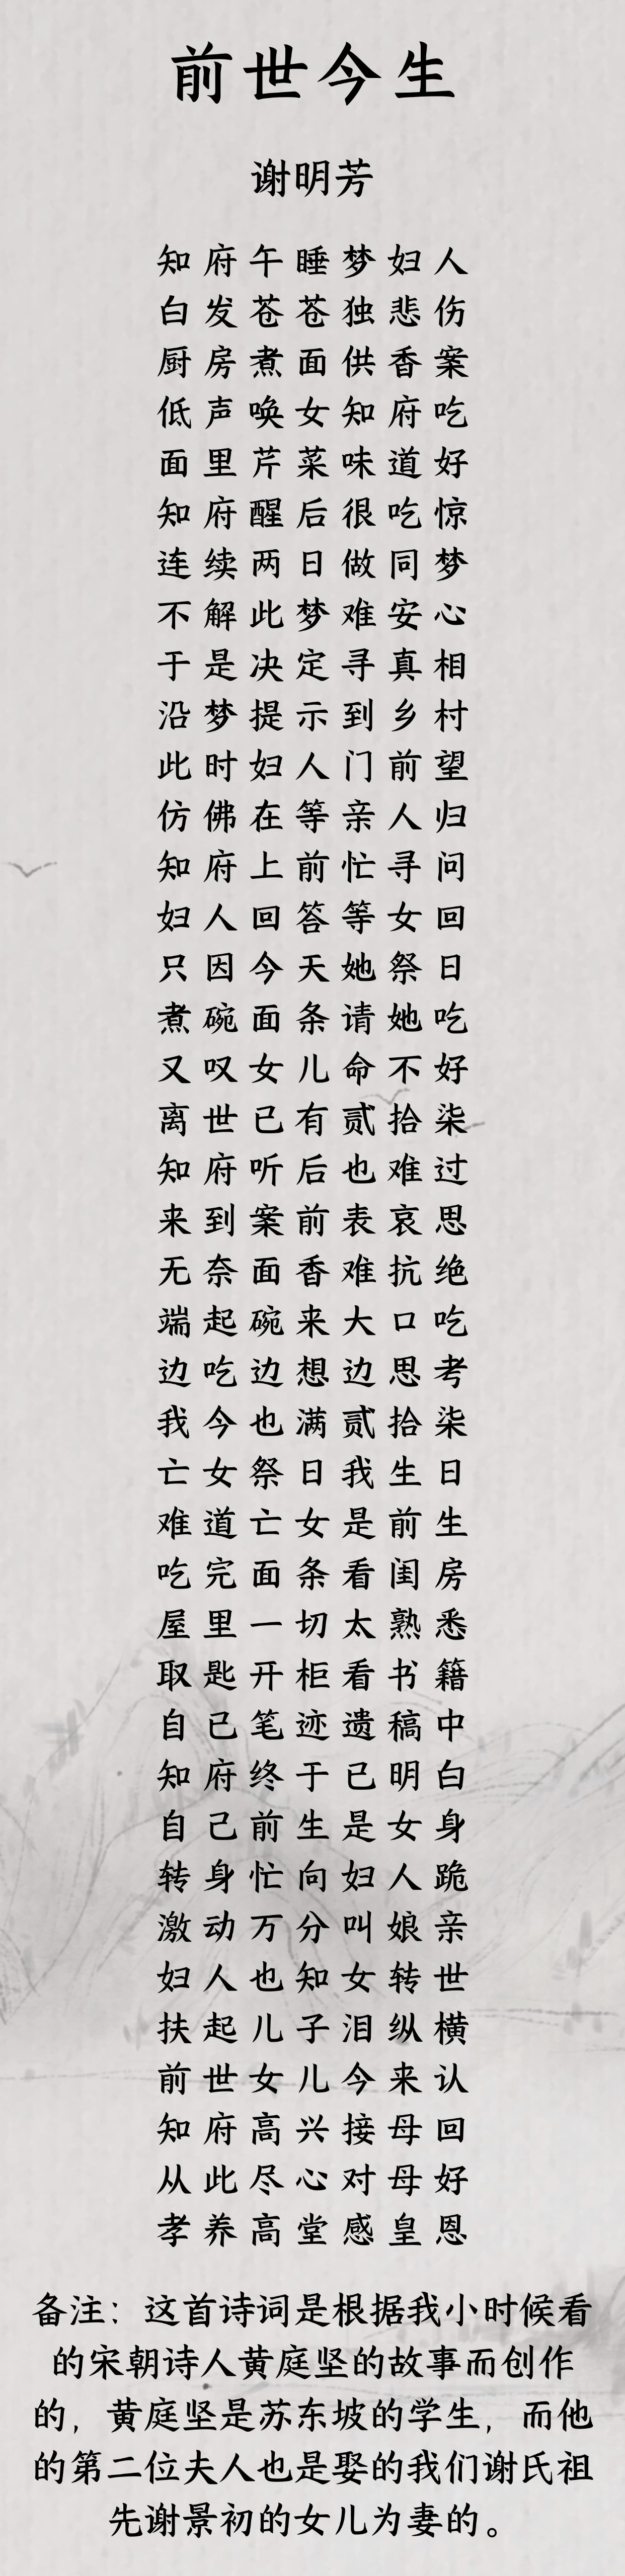 前世今生
谢明芳
知府午睡梦妇人
白发苍苍独悲伤
厨房煮面供香案
低声唤女知府吃
面里芹菜味道好
知府醒后很吃惊
连续两日做同梦
不解此梦难安心
于是决定寻真相
沿梦提示到乡村
此时妇人门前望
仿佛在等亲人归
知府上前忙寻问
妇人回答等女回
只因今天她祭日
煮碗面条请她吃
又叹女儿命不好
离世已有贰拾柒
知府听后也难过
来到案前表哀思
无奈面香难抗绝
端起碗来大口吃
边吃边想边思考
我今也满贰拾柒
亡女祭日我生日
难道亡女是前生
吃完面条看闺房
屋里一切太熟悉
取匙开柜看书籍
自己笔迹遗稿中
知府终于已明白
自己前生是女身
转身忙向妇人跪
激动万分叫娘亲
妇人也知女转世
扶起儿子泪纵横
前世女儿今来认
知府高兴接母回
从此尽心对母好
孝养高堂感皇恩
备注：这首诗词是根据我小时候看
的宋朝诗人黄庭坚的故事而创作
的，黄庭坚是苏东坡的学生，而他
的第二位夫人也是娶的我们谢氏祖
先谢景初的女儿为妻的。